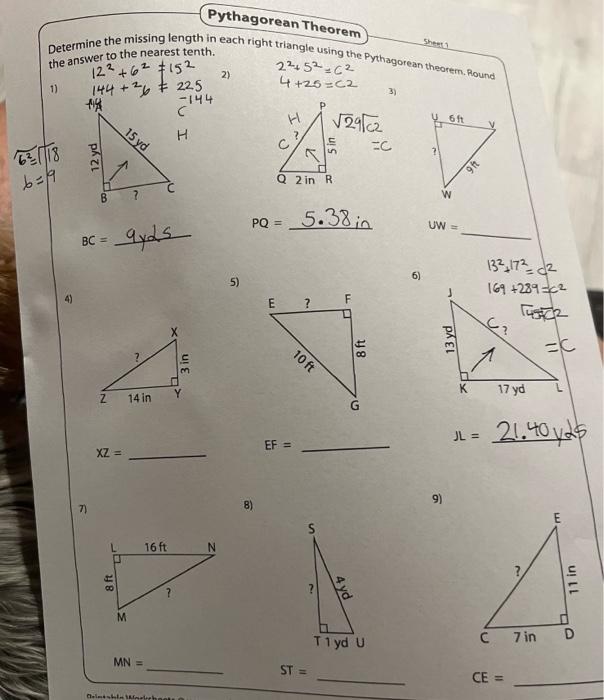 Pythagorean Theorem
Sheet 1
Determine the missing length in each right triangle using the Pythagorean theorem. Round
the answer to the nearest tenth.
1)
12² + b² = 15²
144 + = 225
-144
C
H
15 yd
12 yd
B
?
C
b = 9
BC = 9yds
2)
2² + 5² = C²
4 + 25 = C2
√29 C2
= C
P
H
C
?
5 in
Q 2 in R
PQ = 5.38 in
3)
U 6 ft V
?
9 ft
W
UW =
4)
X
?
3 in
Z 14 in Y
XZ =
5)
E ? F
10 ft
8 ft
G
EF =
6)
13² + 17² = C2
169 + 289 = C²
= C
J
C ?
13 yd
K 17 yd L
JL = 21.40 yds
7)
L 16 ft N
8 ft
?
M
MN =
8)
S
?
4 yd
T 1 yd U
ST =
9)
E
?
11 in
C 7 in D
CE =